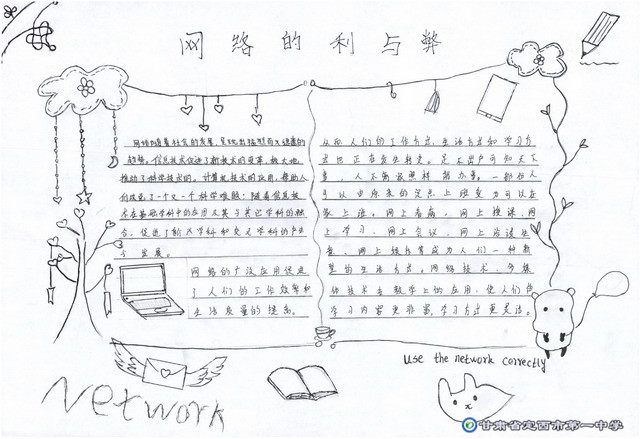 网络的利与弊
网络随着社会的发展,呈现出猛烈而又迅速的
趋势。信息技术促进了新技术的变革,极大地
推动了科学技术的。计算机技术的应用,帮助人
们攻克了一个又一个科学难题;随着信息技
术在基础学科中的应用以其与其它学科的融
合,促进了新兴学科和交叉学科的产生
与发展。
网络的广泛应用促进
了人们的工作效率和
生活质量的提高。
从而人们的工作方式,生活方式和学习方
式也正在发生转变。足不出户可知天下
事,人不离家照样能办事。一部份人
可以由原来的定点上班变为可以在
家上班。网上看病,网上授课,网
上学习,网上会议,网上
网上娱乐等成为人们一种新
型的生活方式。网络技术,多媒
体技术在教学上的应用,使人们的
学习内容更丰富,学习方式更灵活。
Use the network correctly
Network
甘肃省定西市第一中学